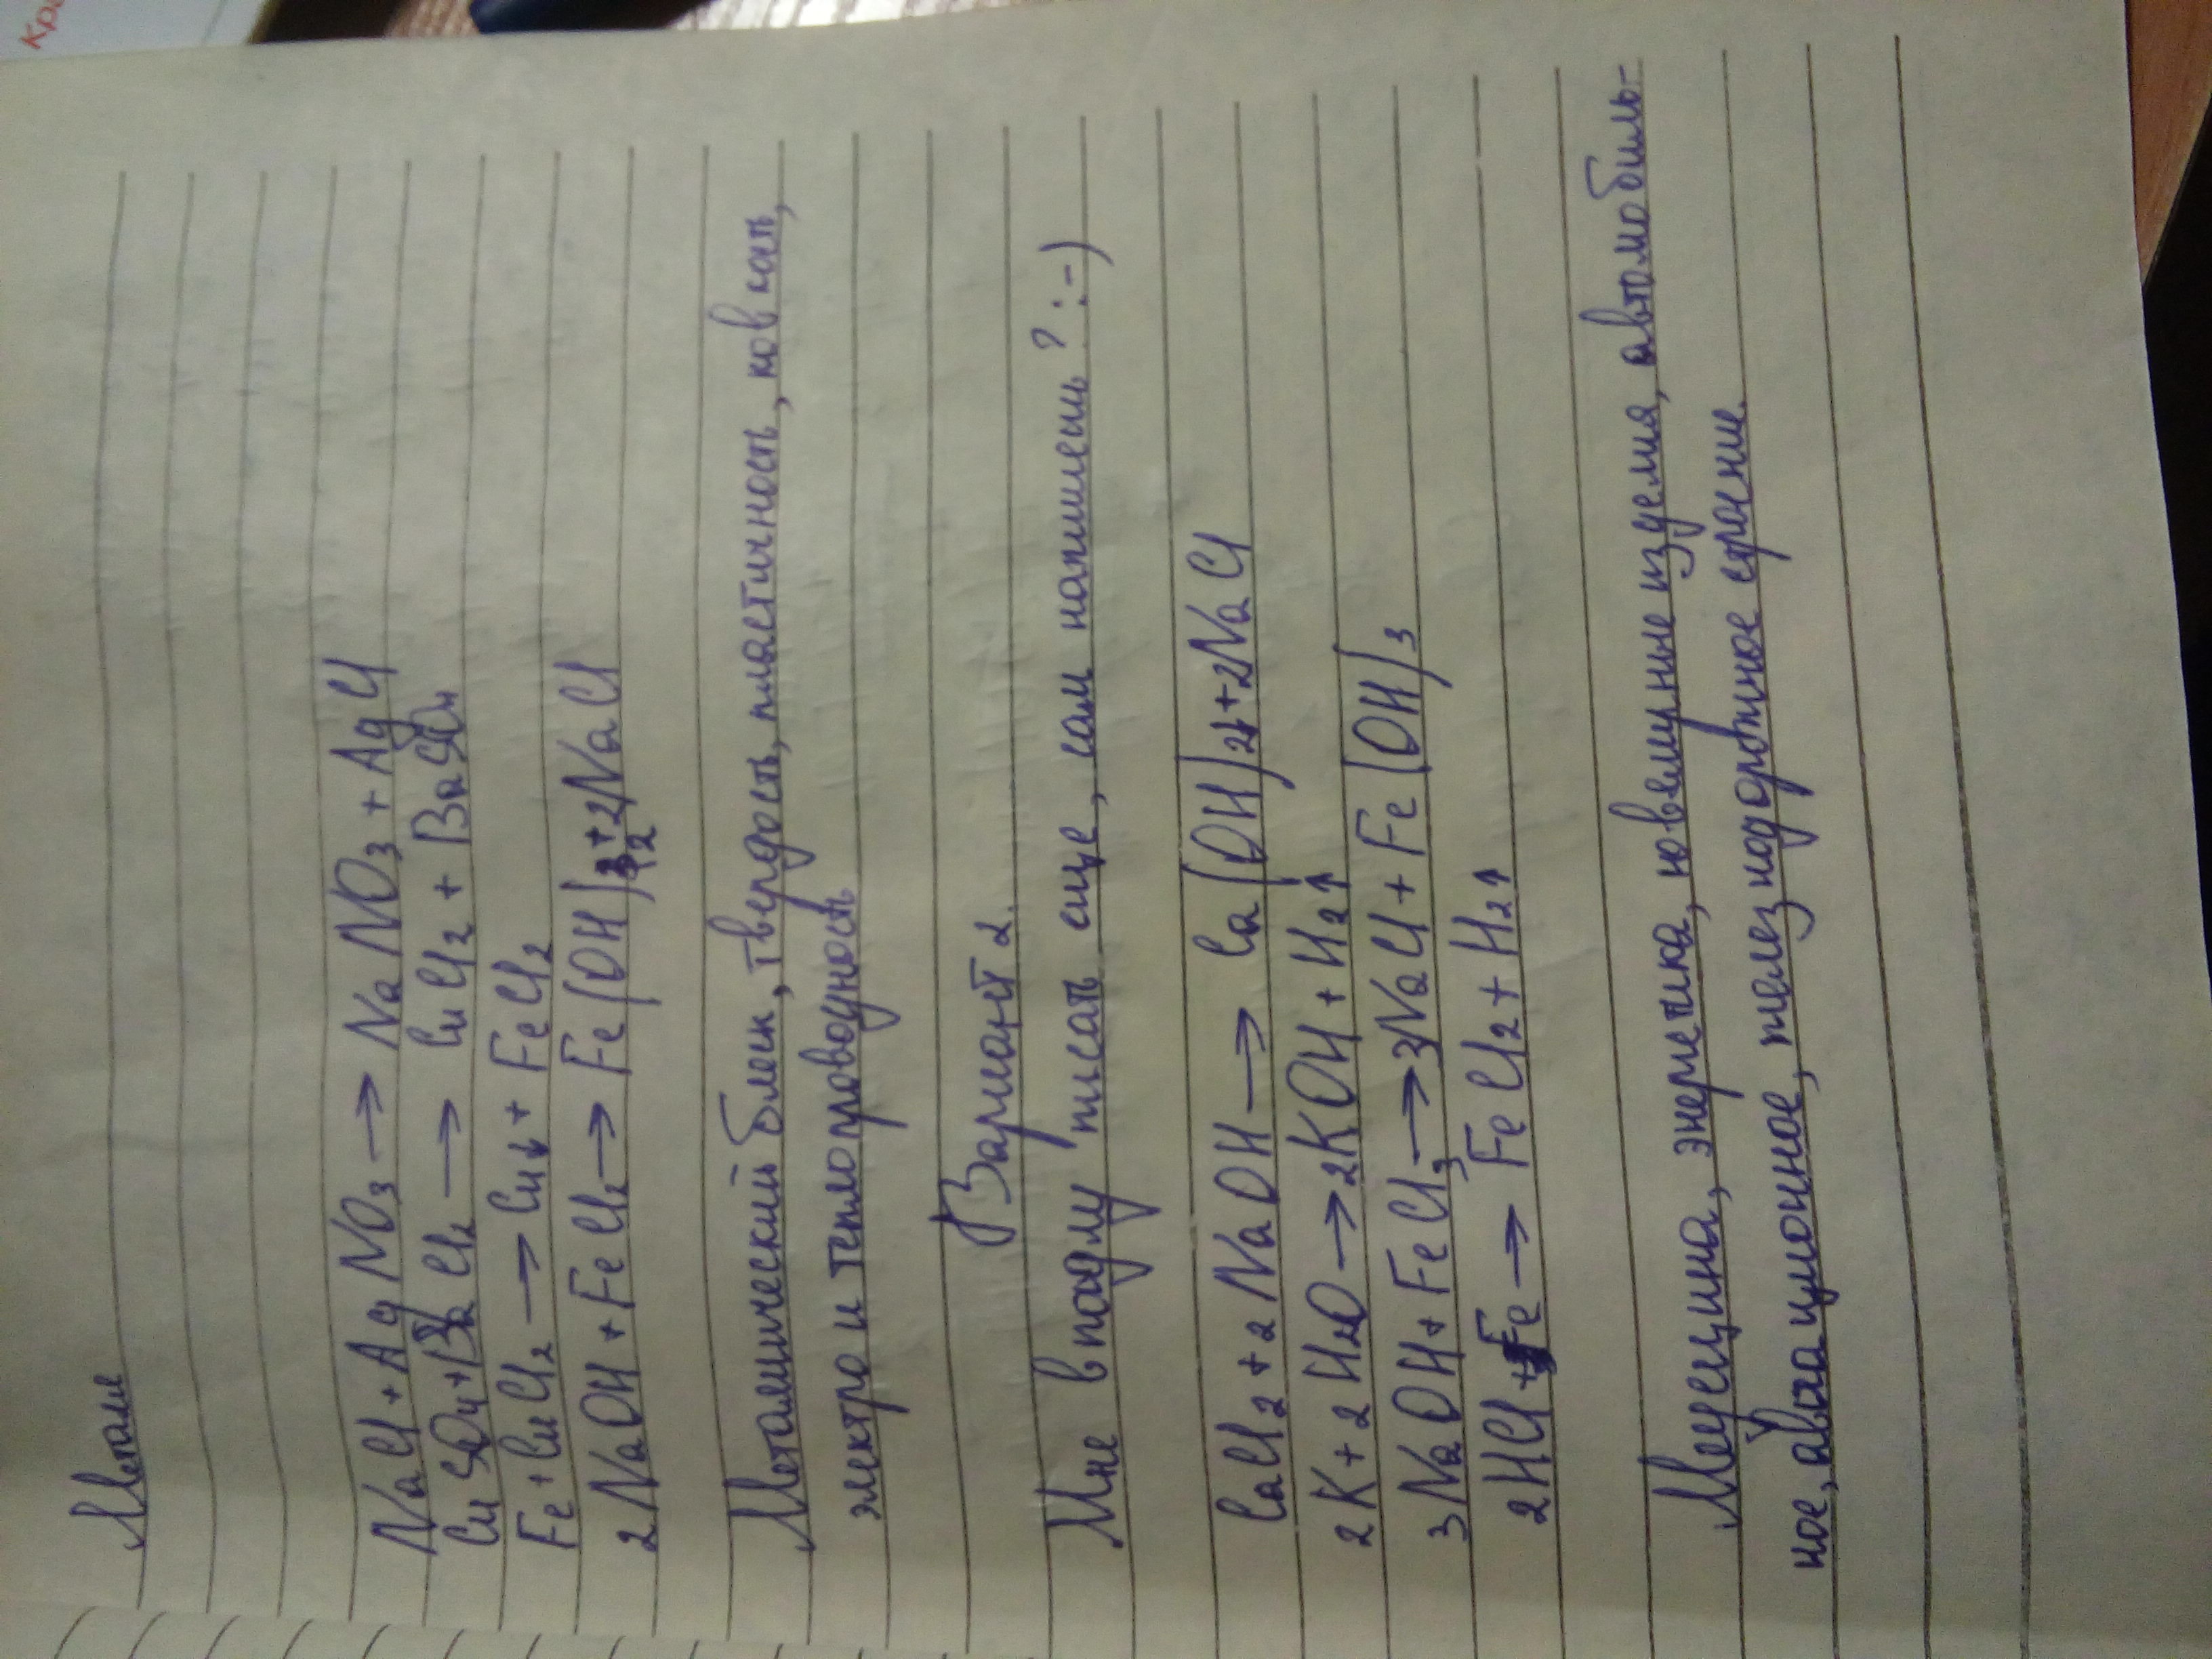 Металл
NaCl + AgNO₃ → NaNO₃ + AgCl
CuSO₄ + BaCl₂ → CuCl₂ + BaSO₄
Fe + CuCl₂ → Cu↓ + FeCl₂
2NaOH + FeCl₂ → Fe(OH)₂ + 2NaCl
Металлический блеск, твердость, пластичность, ковкать,
электро и теплопроводность
Вариант 2.
Мне впадлу писать еще, сам напишешь? :-)
CaCl₂ + 2NaOH → Ca(OH)₂↓ + 2NaCl
2K + 2H₂O → 2KOH + H₂↑
3NaOH + FeCl₃ → 3NaCl + Fe(OH)₃
2HCl + Fe → FeCl₂ + H₂↑
Медецина, энергетика, ювелирные изделия, автомобиль-
ное, авиационное, железнодорожное строение.
Кра